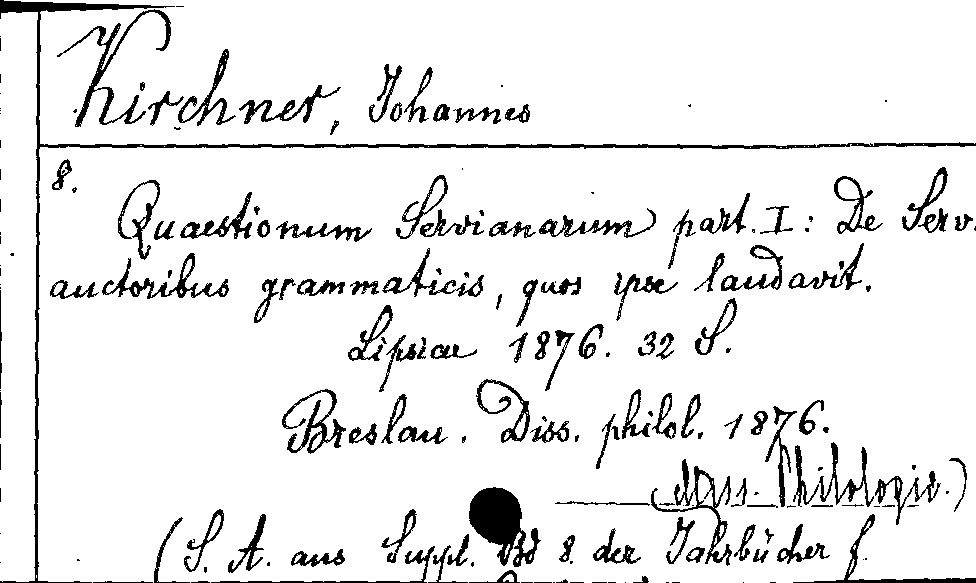 Kirchner, Johannes
8.
Quaestionum Servianarum part. I: De Serv.
auctoribus grammaticis, quos ipse laudavit.
Lipsiae 1876. 32 S.
Breslau. Diss. philol. 1876.
(Diss. Philologie.)
(S. A. aus Suppl. Bd 8. der Jahrbücher f.